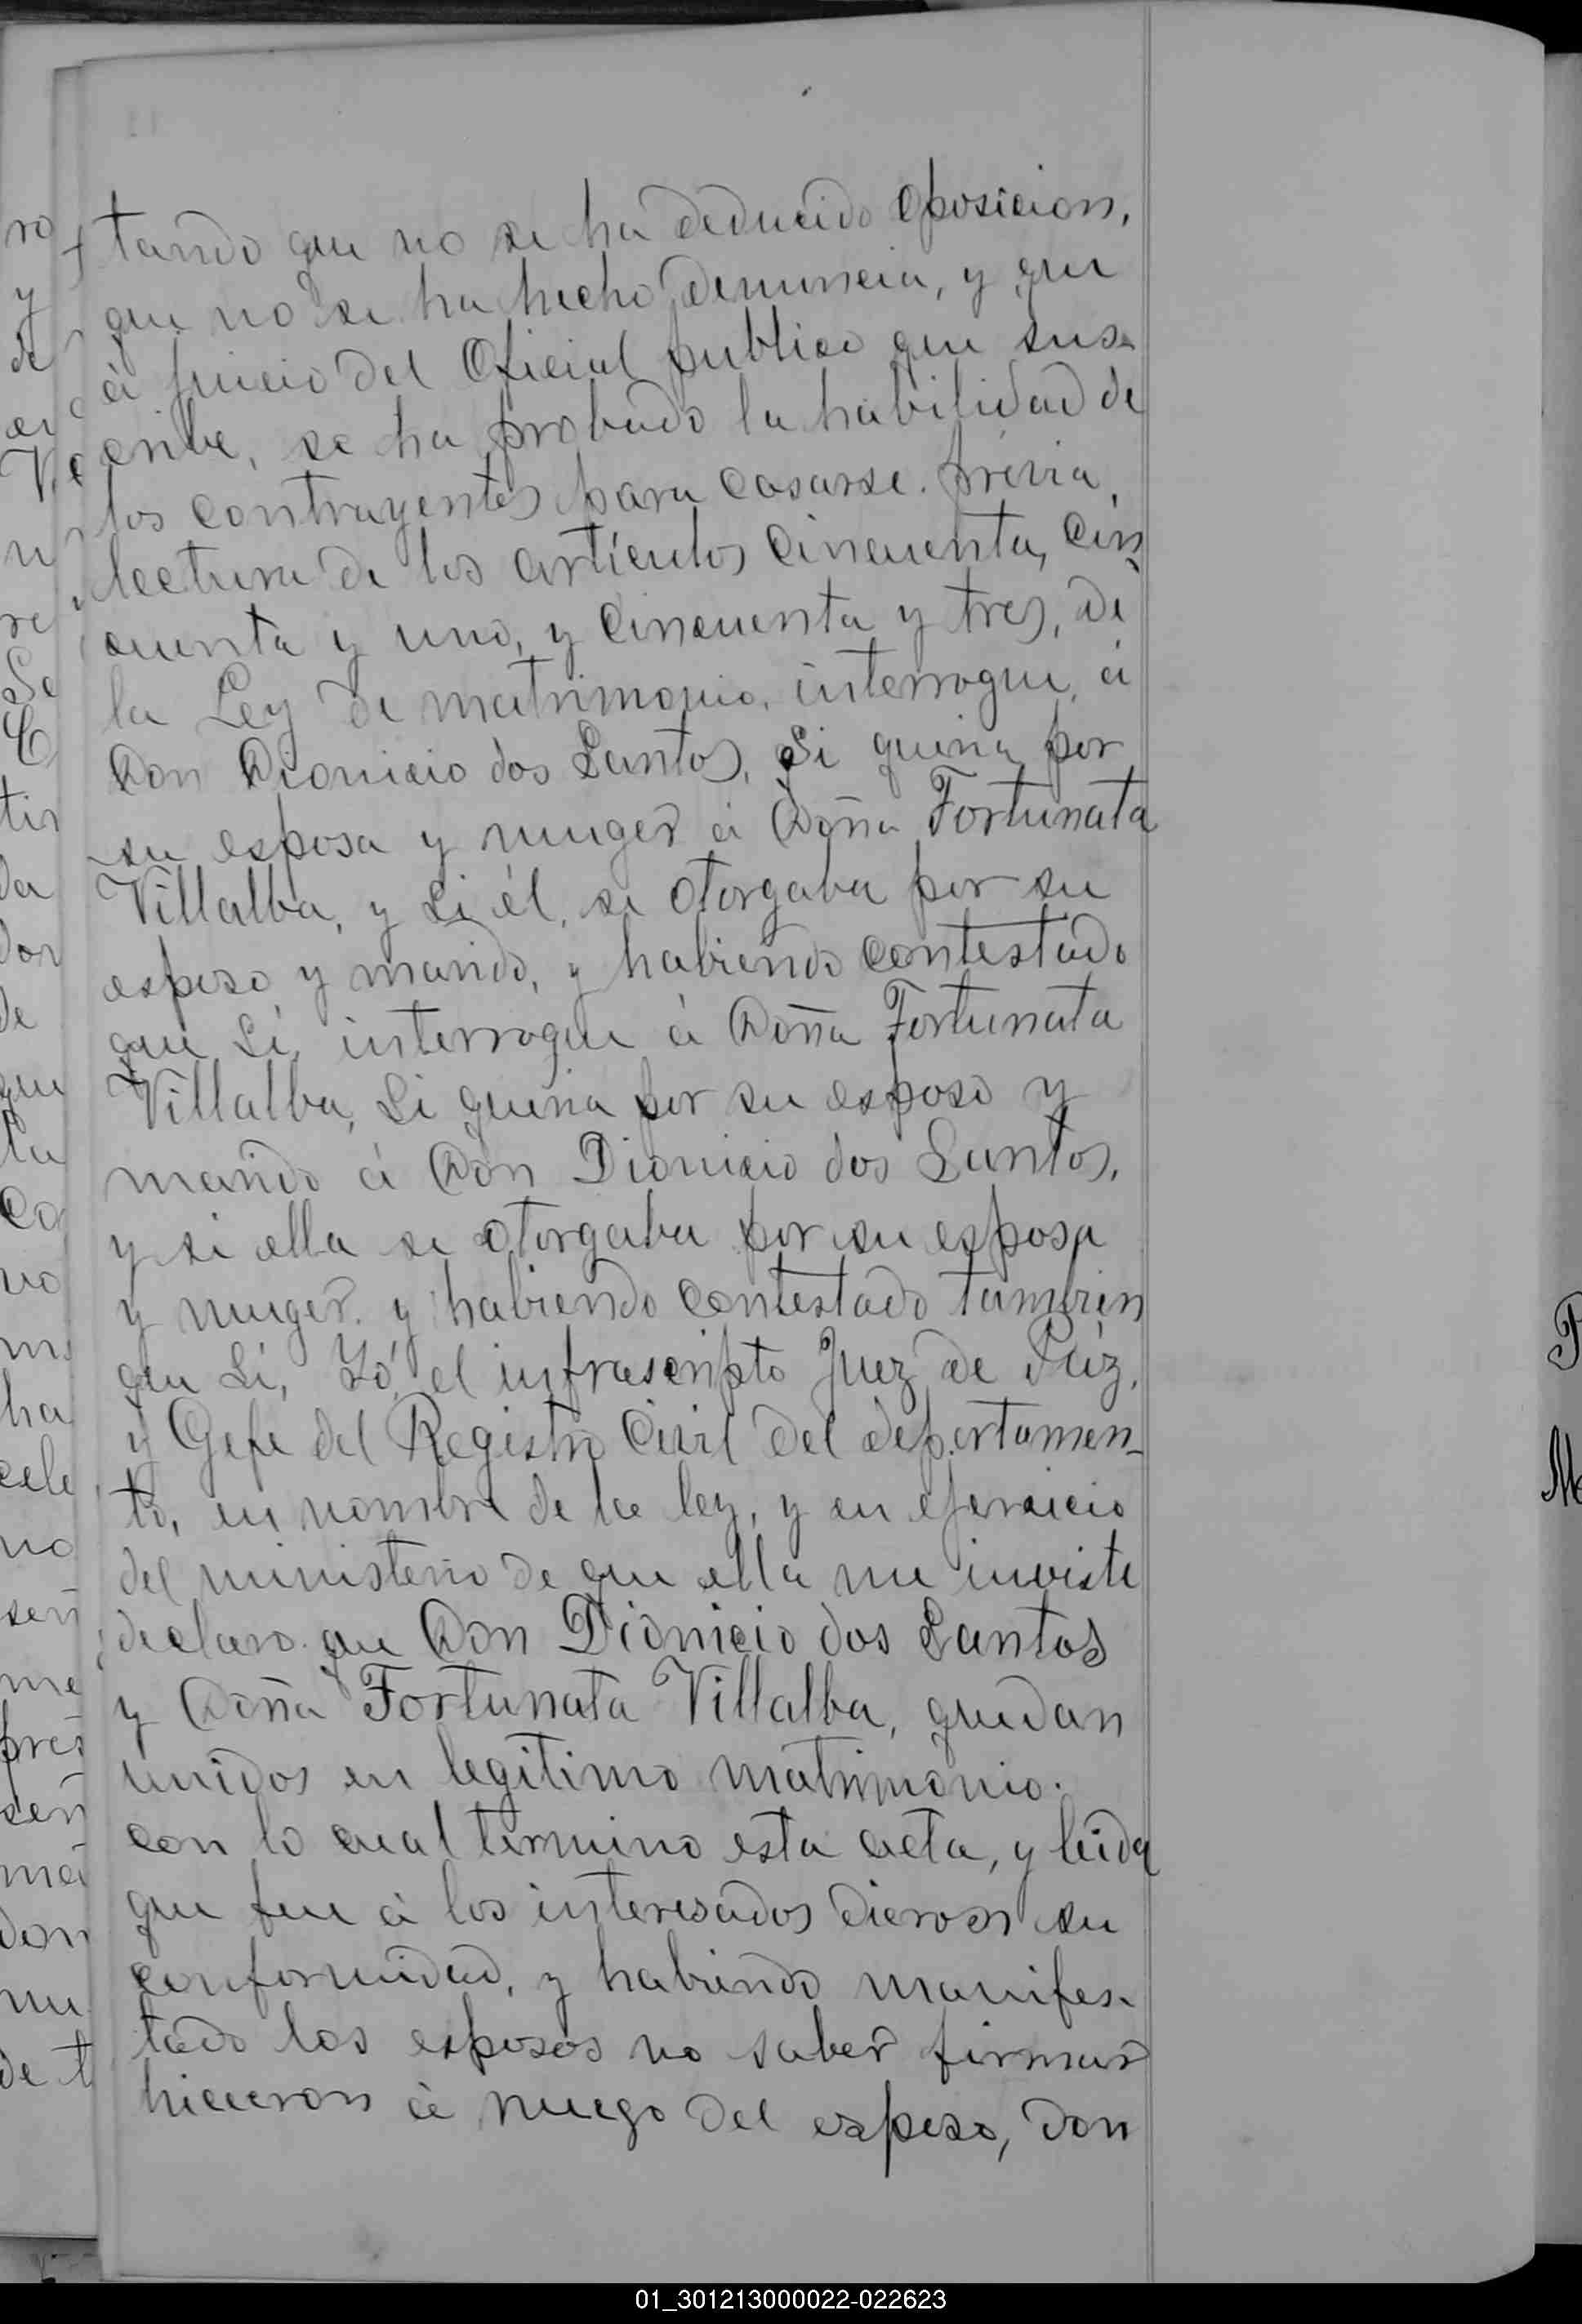 tando que no se ha deducido oposicion,
que no se ha hecho denuncia, y que
á juicio del Oficial publico que sus-
cribe, se ha probado la habilidad de
los contrayentes para casarse. prévia
lectura de los artículos cincuenta, cin
cuenta y uno, y cincuenta y tres, de
la Ley de matrimonio, interrogué á
Don Dionicio dos Santos, si queria por
su esposa y muger á Doña Fortunata
Villalba, y si él, se otorgaba por su
esposo y marido, y habiendo contestado
que si, interrogue á Doña Fortunata
Villalba, si queria por su esposo y
marido á Don Dionicio dos Santos,
y si ella se otorgaba por su esposa
y muger. y habiendo contestado tambien
que si, Yó, el infrascripto Juez de Paz,
y Gefe del Registro Civil del departamen-
to, en nombre de la ley, y en ejersicio
del ministerio de que ella me inviste
declaro que Don Dionicio dos Santos
y Doña Fortunata Villalba, quedan
unidos en legitimo matrimonio.
con lo cual termino esta acta, y leida
que fue á los interesados dieron su
conformidad, y habiendo manifes-
tado los esposos no saber firmar
hicieron á ruego del esposo, don
01_301213000022-022623